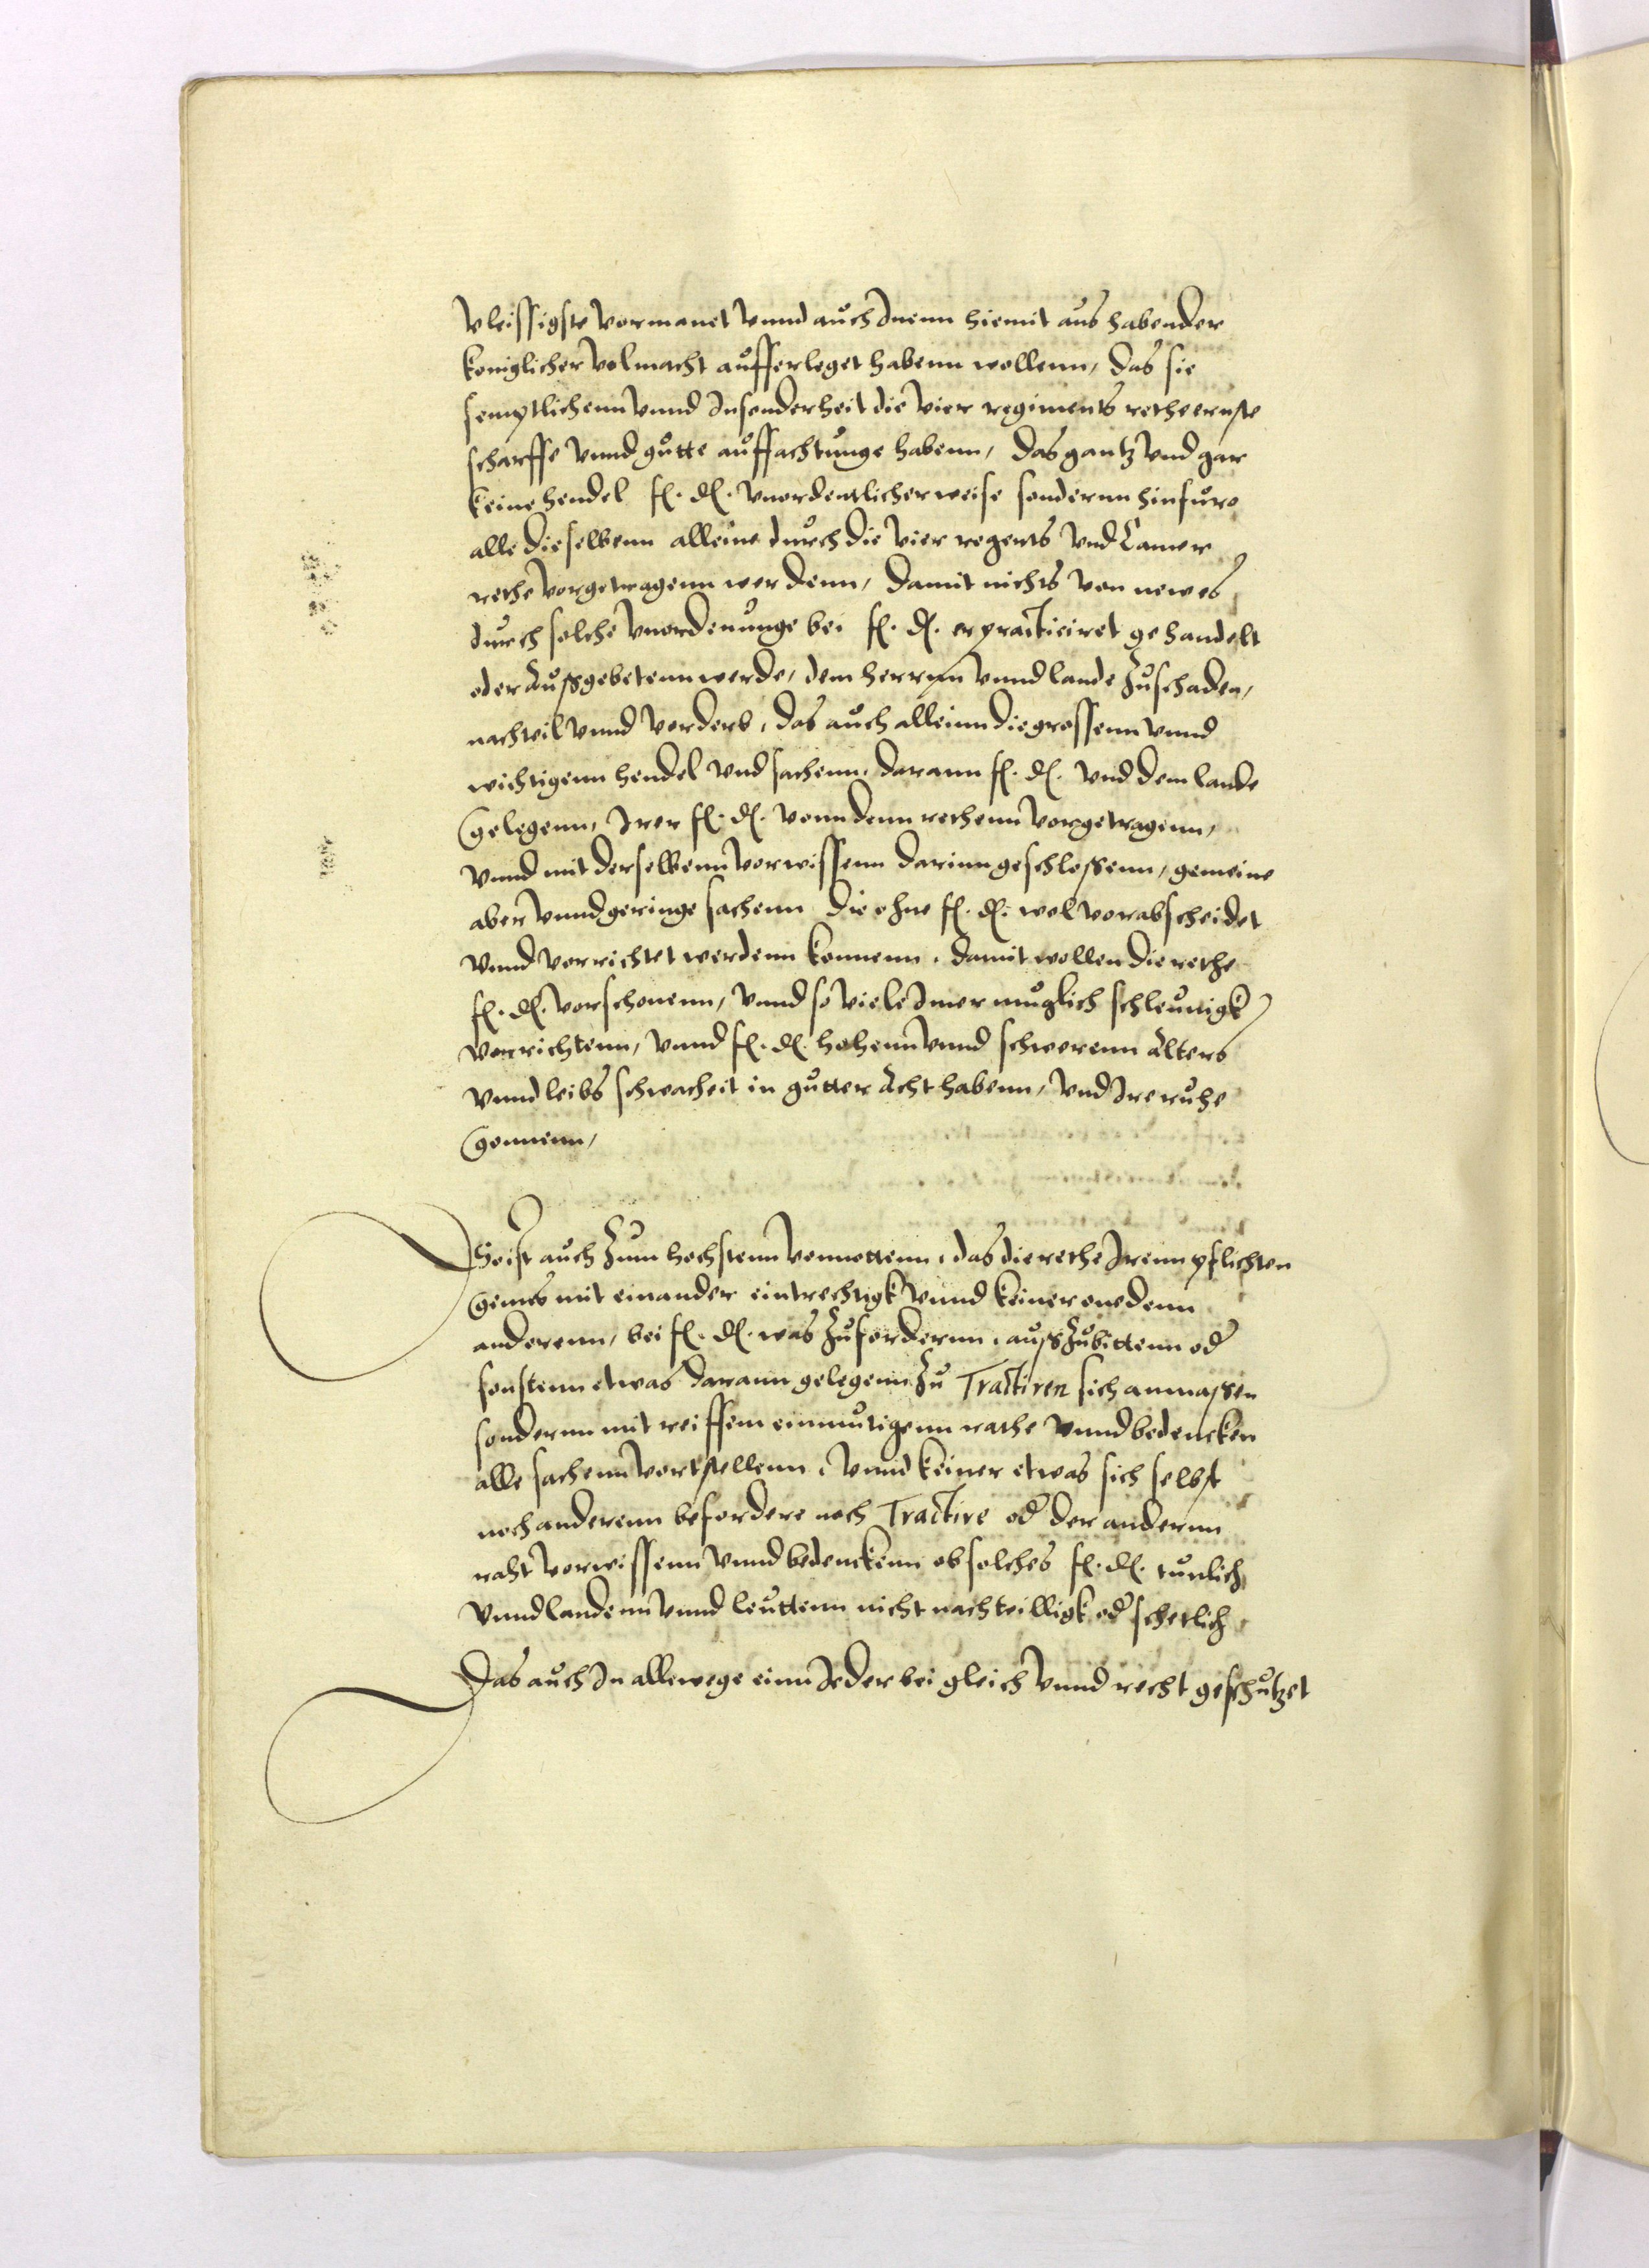 vleissigste vormanet vnnd auch Inenn hiemit aus habender
koniglicher volmacht aufferleget habenn wollenn, das sie
semptlichenn vnnd Insonderheit die vier regiments rethe ernste
scharffe vnnd gutte auffachtunge habenn, das gantz vnd gar
keine hendel f. d. vnordentlicher weise sondernn hinfuro
alle dieselbenn alleine durch die vier regents vnd Camer
rethe vorgetragenn werdenn, damit nichts von newes
durch solche vnordenunge bei f. d. erpracticiret gehandelt
oder außgebetenn werde, dem herrnn vnnd lande zuschaden,
nachteil vnnd vorderb, das auch alleinn die grossenn vnnd
wichtigenn hendel vnd sachenn, darann f. d. vnd dem lande
gelegenn, Irer f. d. vonn denn rethenn vorgetragenn,
vnnd mit derselbenn vorwissenn darinn geschlossenn, gemeine
aber vnnd geringe sachenn die ohne f. d. wol vorabscheidet
vnnd vorrichtet werdenn konnenn, damit wollen die rethe
f. d. vorschonenn, vnnd so viele Imer muglich schleunigk
vorrichtenn, vnnd f. d. hohenn vnnd schwerenn alters
vnnd leibs schwacheit in gutter acht habenn, vnd Ire ruhe
gonnenn,
So ist auch zum hochstenn vonnottenn, das die rethe Irenn pflichten
gemes mit einander eintrechtigk vnnd keiner one denn
anderenn, bei f. d. was zufordernn, außzubittenn od
sonstenn etwas darann gelegenn zu Tractiren sich anmassen
sondernn mit reiffem einmutigenn rathe vnnd bedencken
alle sachenn vortstellenn, vnnd keiner etwas sich selbst
noch anderenn befordere noch Tractire od der andernn
raht vorwissenn vnnd bedenckenn ob solches f. d. tunlich
vnnd landenn vnnd leuttenn nicht nachteilligk od schetlich
Das auch In allewege einn Jeder bei gleich vnnd recht geschutzet